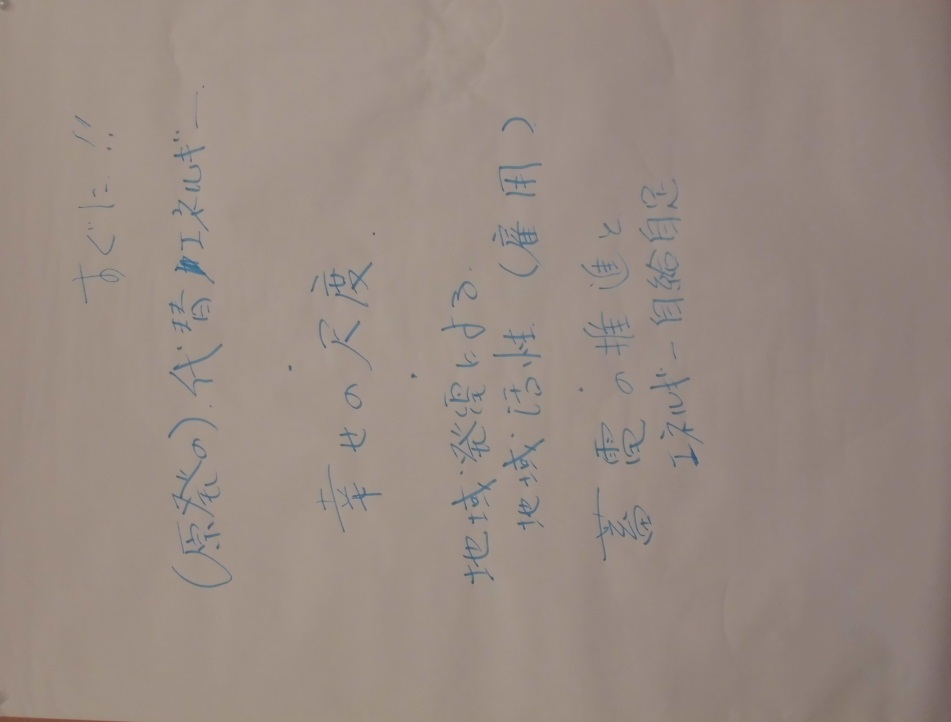 すぐに!!
(原発の)代替エネルギー
・幸せの尺度
・地域発電による
地域活性(雇用)
・蓄電の推進と
エネルギー自給自足